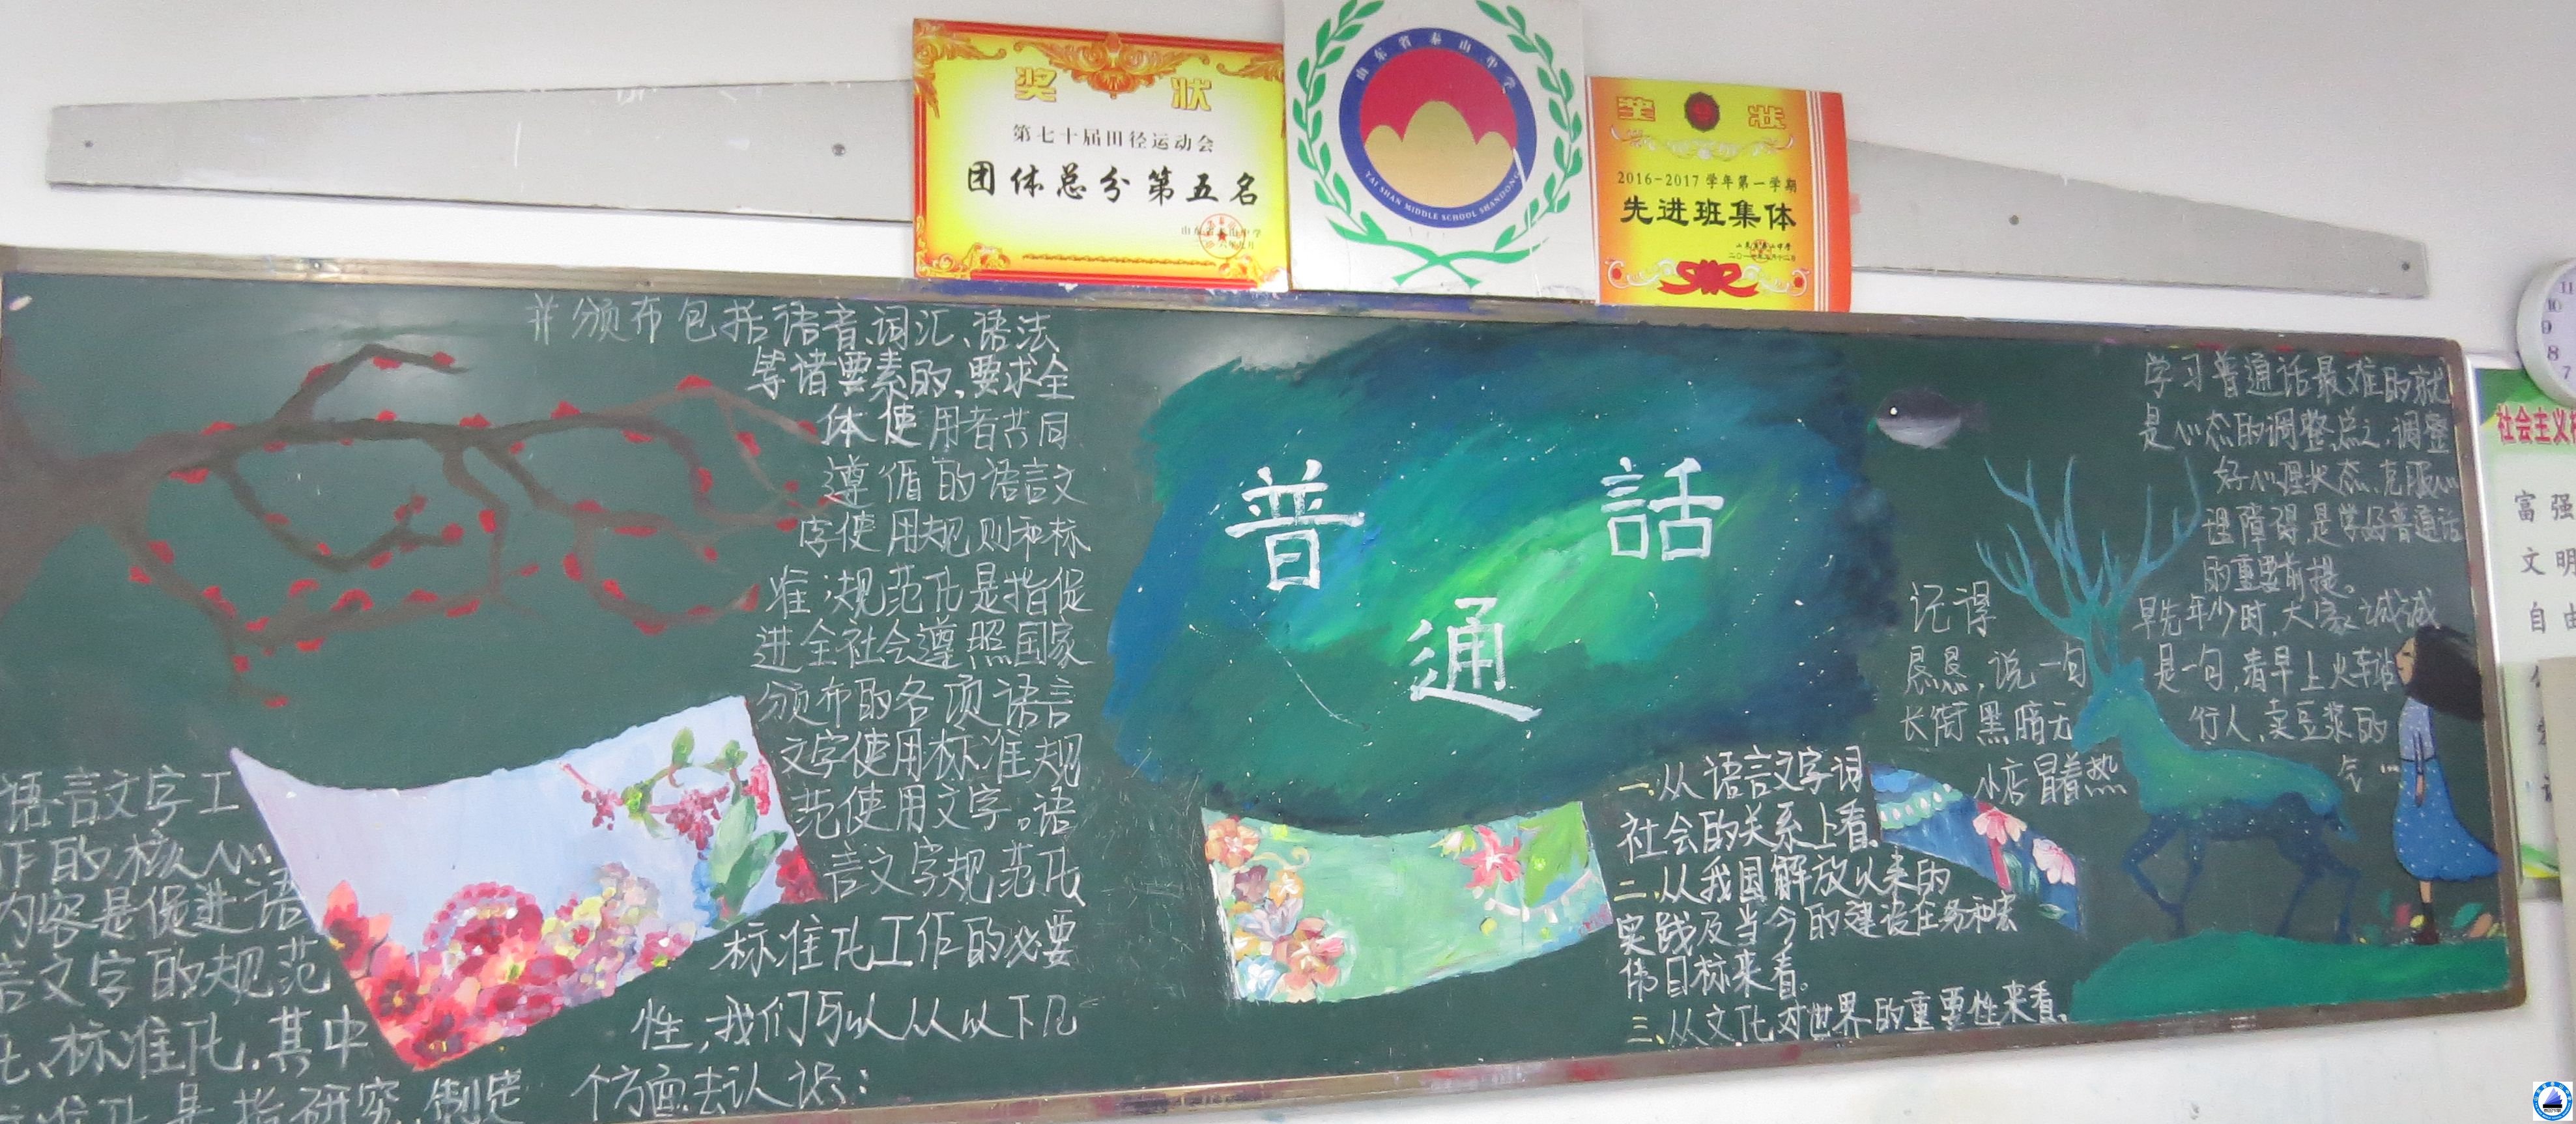 奖 状
第七十届田径运动会
团体总分第五名
山东省泰山中学
山东省泰山中学
TAI SHAN MIDDLE SCHOOL SHANDONG
奖 状
2016-2017 学年第一学期
先进班集体
山东省泰山中学
11
10
9
8
7
社会主义
富强
文明
自由
语言文字工
作的核心
内容是促进语
言文字的规范
化、标准化.其中
标准化是指研究、制定
并颁布包括语音、词汇、语法
等诸要素的,要求全
体使用者共同
遵循的语言文
字使用规则和标
准;规范化是指促
进全社会遵照国家
颁布的各项语言
文字使用标准规
范使用文字。语
言文字规范化
标准化工作的必要
性,我们可以从以下几
个方面去认识:
普通話
一.从语言文字词
社会的关系上看.
二.从我国解放以来的
实践及当今的建设任务和宏
伟目标来看。
三.从文化对世界的重要性来看.
学习普通话最难的就
是心态的调整点之,调整
好心理状态,克服心
理障碍,是学好普通话
的重要前提。
记得早先年少时,大家诚诚
恳恳,说一句 是一句,清早上火车站
长街黑暗无 行人,卖豆浆的
小店冒着热 气…